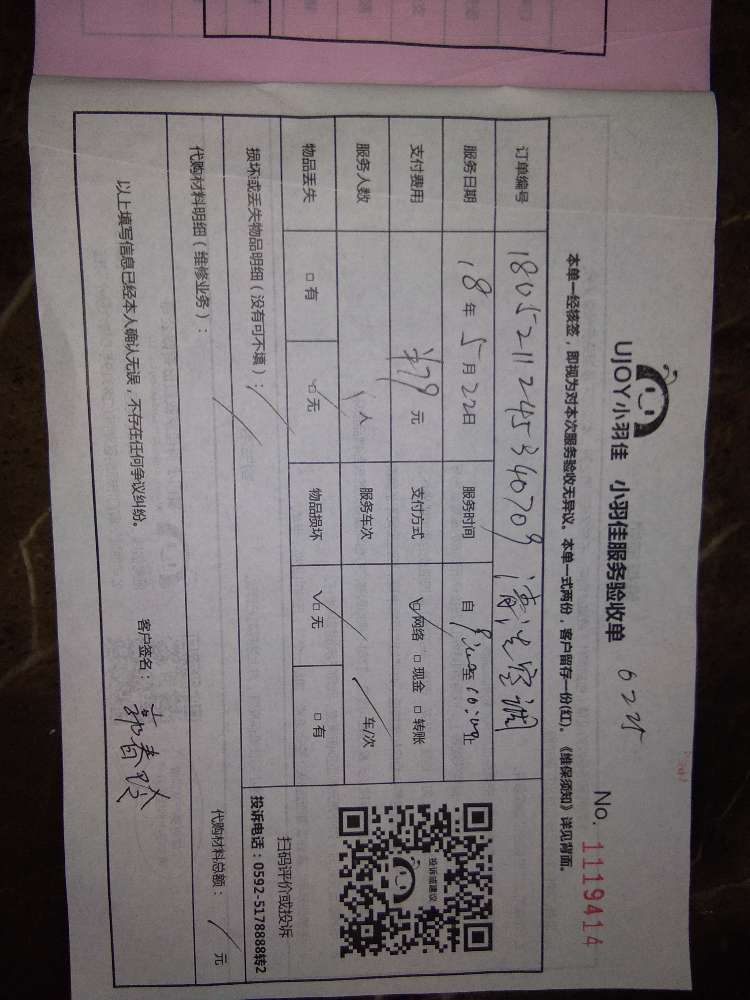 UJOY小羽佳 小羽佳服务验收单 6225
No. 1119414
本单一经核签，即视为对本次服务验收无异议。本单一式两份，客户留存一份(红)。《维保须知》详见背面。
订单编号 1805211245340709 清洗空调
服务日期 18年5月22日 服务时间 自 至 止
支付费用 ¥79元 支付方式 ☑网络 □现金 □转账
服务人数 人 服务车次 车/次
物品丢失 □有 ☑无 物品损坏 ☑无 □有
投诉或建议
扫码评价或投诉
投诉电话：0592-5178888转2
损坏或丢失物品明细（没有可不填）：
代购材料明细（维修业务）： 代购材料总额： 元
以上填写信息已经本人确认无误，不存在任何争议纠纷。 客户签名： 郭春玲